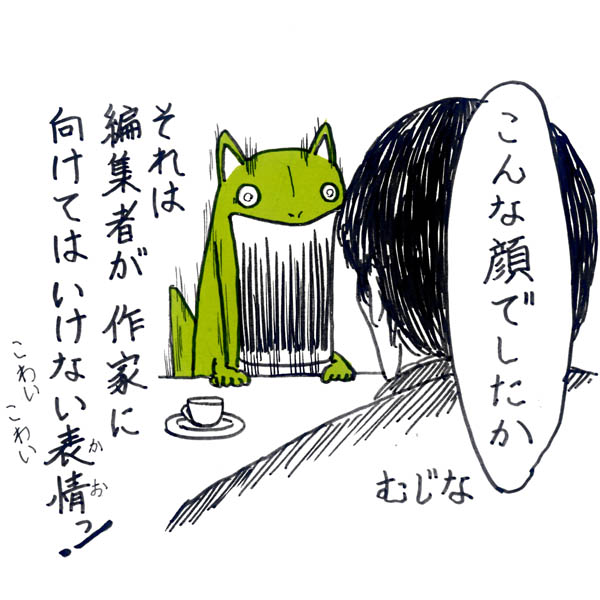 こんな顔でしたか
むじな
それは
編集者が 作家に
向けてはいけない表情っ!
かお
こわい
こわい